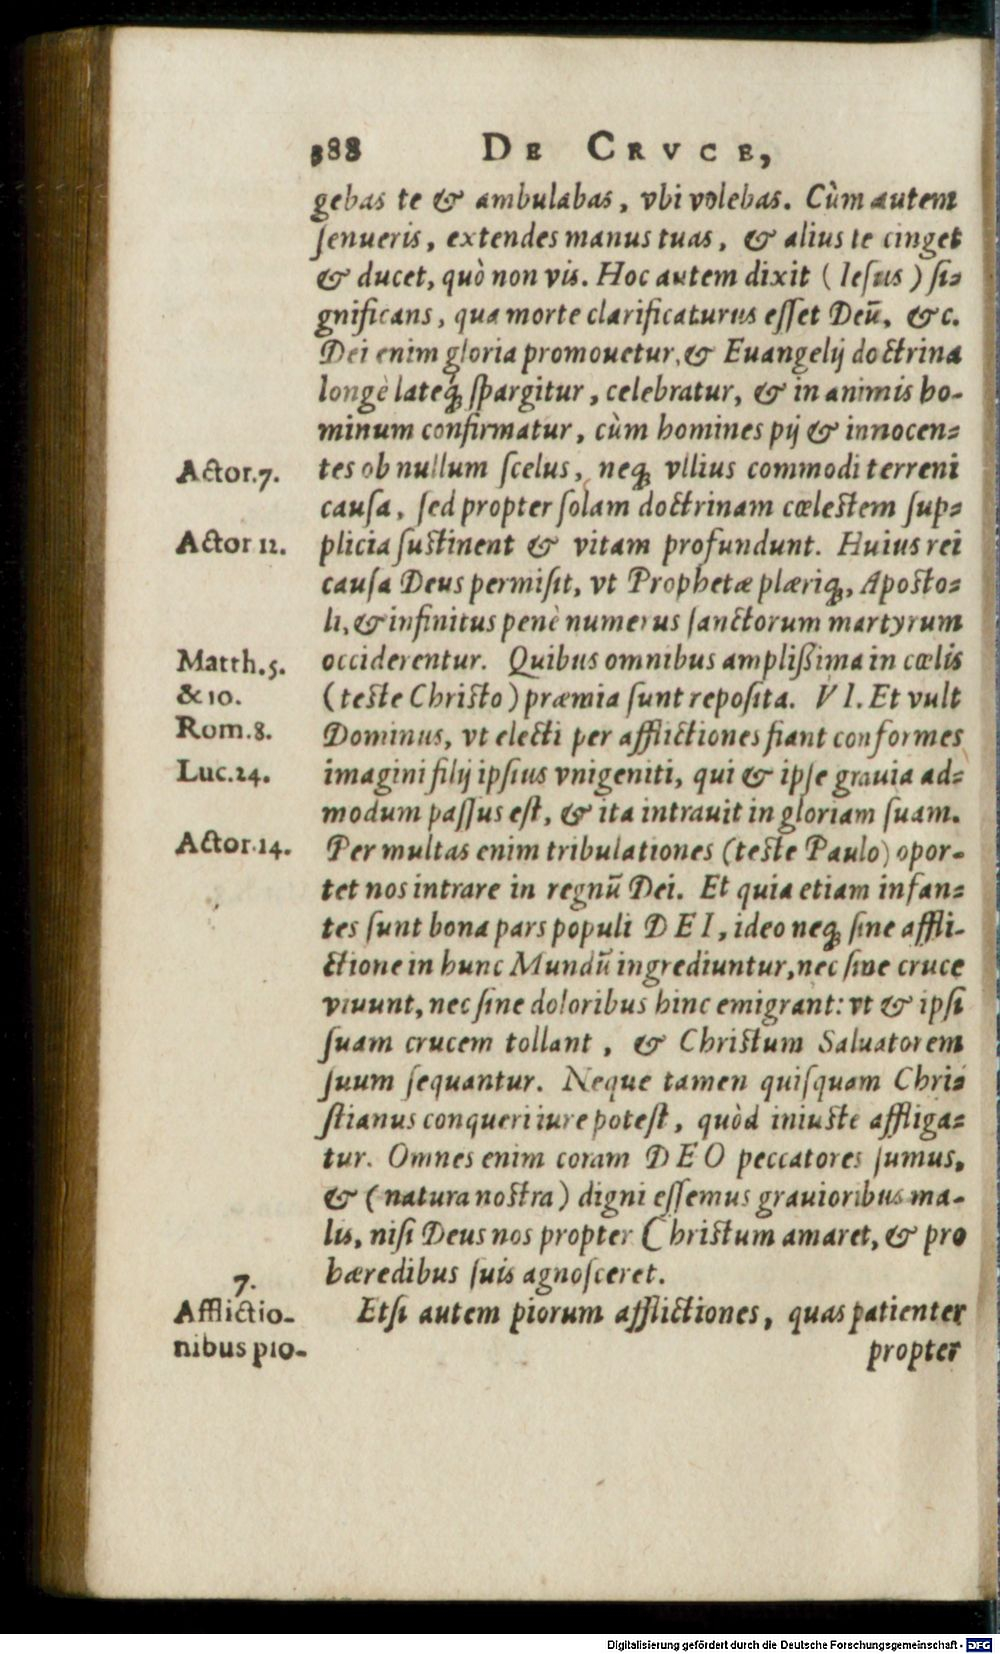 388 DE CRVCE,
gebas te & ambulabas, vbi volebas. Cùm autem
ſenueris, extendes manus tuas, & alius te cinget
& ducet, quò non vis. Hoc autem dixit (Ieſus) ſi-
gnificans, qua morte clarificaturus eſſet Deũ, &c.
Dei enim gloria promouetur, & Euangelij doctrina
longè lateq́; ſpargitur, celebratur, & in animis ho-
minum confirmatur, cùm homines pij & innocen-
Actor.7. tes ob nullum ſcelus, neq; vllius commodi terreni
cauſa, ſed propter ſolam doctrinam cœleſtem ſup-
Actor 12. plicia ſuſtinent & vitam profundunt. Huius rei
cauſa Deus permiſit, vt Prophetæ plæriq;, Apoſto-
li, & infinitus penè numerus ſanctorum martyrum
Matth.5. occiderentur. Quibus omnibus ampliſſima in cœlis
&10. (teſte Chriſto) præmia ſunt repoſita. VI. Et vult
Rom.8. Dominus, vt electi per afflictiones fiant conformes
Luc.24. imagini filij ipſius vnigeniti, qui & ipſe grauia ad-
modum paſſus eſt, & ita intrauit in gloriam ſuam.
Actor.14. Per multas enim tribulationes (teſte Paulo) opor-
tet nos intrare in regnũ Dei. Et quia etiam infan-
tes ſunt bona pars populi DEI, ideo neq; ſine affli-
ctione in hunc Mundũ ingrediuntur, nec ſine cruce
viuunt, nec ſine doloribus hinc emigrant: vt & ipſi
ſuam crucem tollant, & Chriſtum Saluatorem
ſuum ſequantur. Neque tamen quiſquam Chri-
ſtianus conqueri iure poteſt, quòd iniuſte affliga-
tur. Omnes enim coram DEO peccatores ſumus,
& (natura noſtra) digni eſſemus grauioribus ma-
lis, niſi Deus nos propter Chriſtum amaret, & pro
hæredibus ſuis agnoſceret.
7.
Afflictio- Etſi autem piorum afflictiones, quas patienter
nibus pio- propter
Digitalisierung gefördert durch die Deutsche Forschungsgemeinschaft - DFG